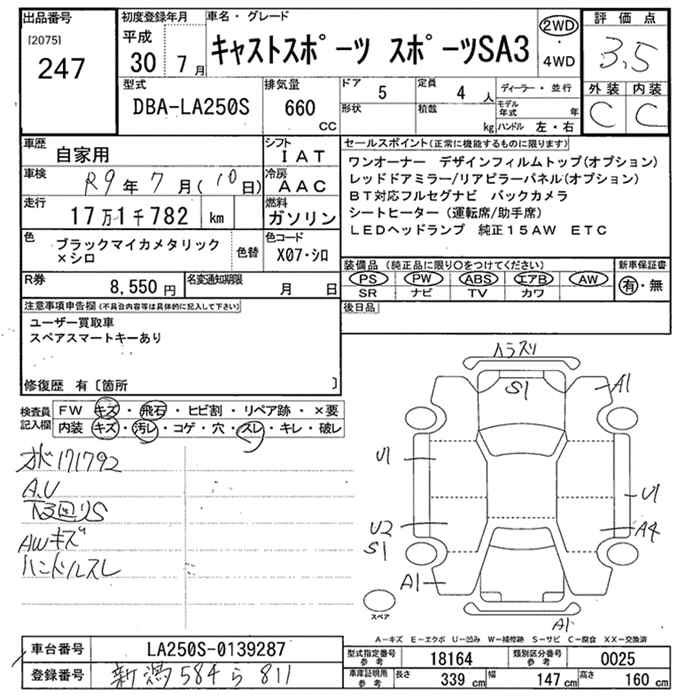 出品番号
[2075]
247
初度登録年月
平成
30 7月
車名・グレード
キャストスポーツ スポーツSA3
2WD
・
4WD
評価点
3.5
外装 内装
C C
型式
DBA-LA250S
排気量
660 CC
ドア
5
形状
定員
4 人
積載
kg
ディーラー・並行
モデル年式 年
ハンドル 左・右
車歴
自家用
シフト
IAT
車検
R9年7月(10日)
冷房
AAC
走行
17万1千782 km
燃料
ガソリン
色
ブラックマイカメタリック
×シロ
色替
色コード
X07・シロ
R券
8,550円
名変通知期限
月 日
セールスポイント(正常に機能するものに限ります)
ワンオーナー デザインフィルムトップ(オプション)
レッドドアミラー/リアピラーパネル(オプション)
BT対応フルセグナビ バックカメラ
シートヒーター(運転席/助手席)
LEDヘッドランプ 純正15AW ETC
装備品(純正品に限り○をつけてください)
PS PW ABS エアB AW
SR ナビ TV カワ
新車保証書
有・無
後日品
注意事項申告欄(不具合内容等は具体的に記入して下さい)
ユーザー買取車
スペアスマートキーあり
修復歴 有〔箇所 〕
検査員記入欄
FW キズ・飛石・ヒビ割・リペア跡・×要
内装 キズ・汚レ・コゲ・穴・スレ・キレ・破レ
オド171792
A.U
下回りS
AWキズ
ハンドルスレ
ハラスリ
S1
A1
U1
U1
U2
S1
A4
A1
A1
スペア
A−キズ E−エクボ U−凹み W−補修跡 S−サビ C−腐食 XX−交換済
車台番号
LA250S-0139287
登録番号
新潟 584 ら 811
型式指定番号
参考
18164
類別区分番号
参考
0025
車庫証明用
参考
長さ
339 cm
幅
147 cm
高さ
160 cm